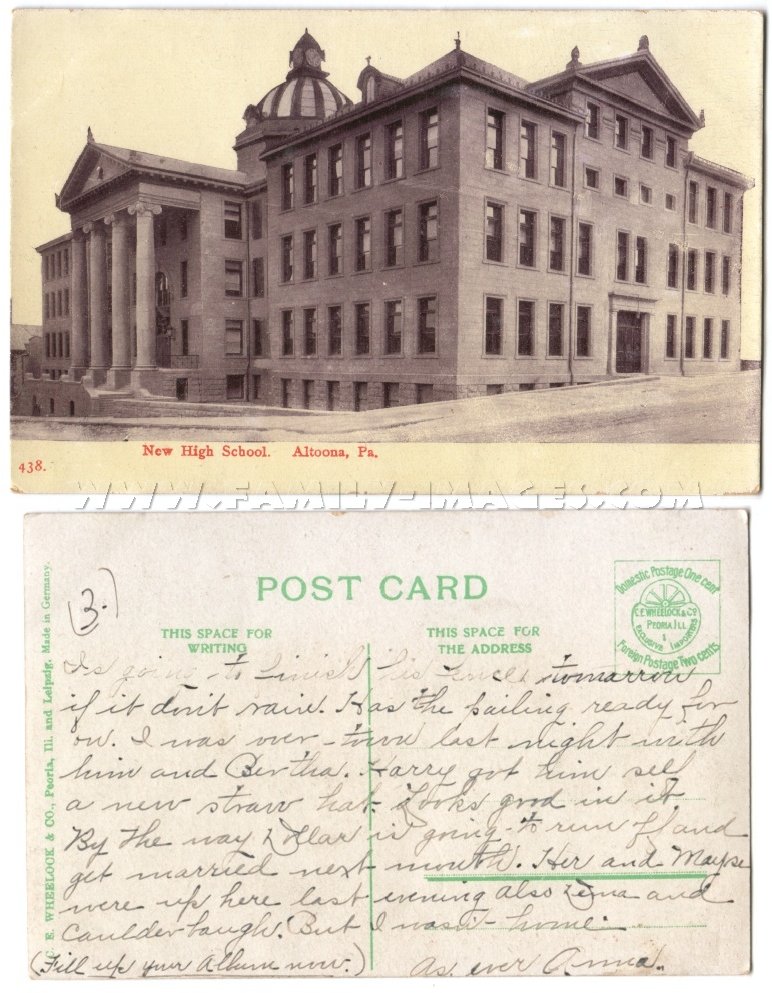 New High School. Altoona, Pa.
438.
WWW.FAMILY-IMAGES.COM
C. E. WHEELOCK & CO., Peoria, Ill. and Leipzig. Made in Germany.
(3.)
POST CARD
THIS SPACE FOR
WRITING
THIS SPACE FOR
THE ADDRESS
Domestic Postage One cent
C.E. WHEELOCK & CO
PEORIA ILL
EXCLUSIVE IMPORTERS
Foreign Postage Two cents
Is going to finish his fence tomarrow
if it don't rain. Has the pailing ready for
on. I was over-town last night with
him and Bertha. Harry got him self
a new straw hat. Looks good in it.
By the way is going to run off and
get married next mouth. Her and Mayse
were up here last evening also and
Caulderbaugh. But I wasn't home.
(Fill up your Album now.) As ever Anna.